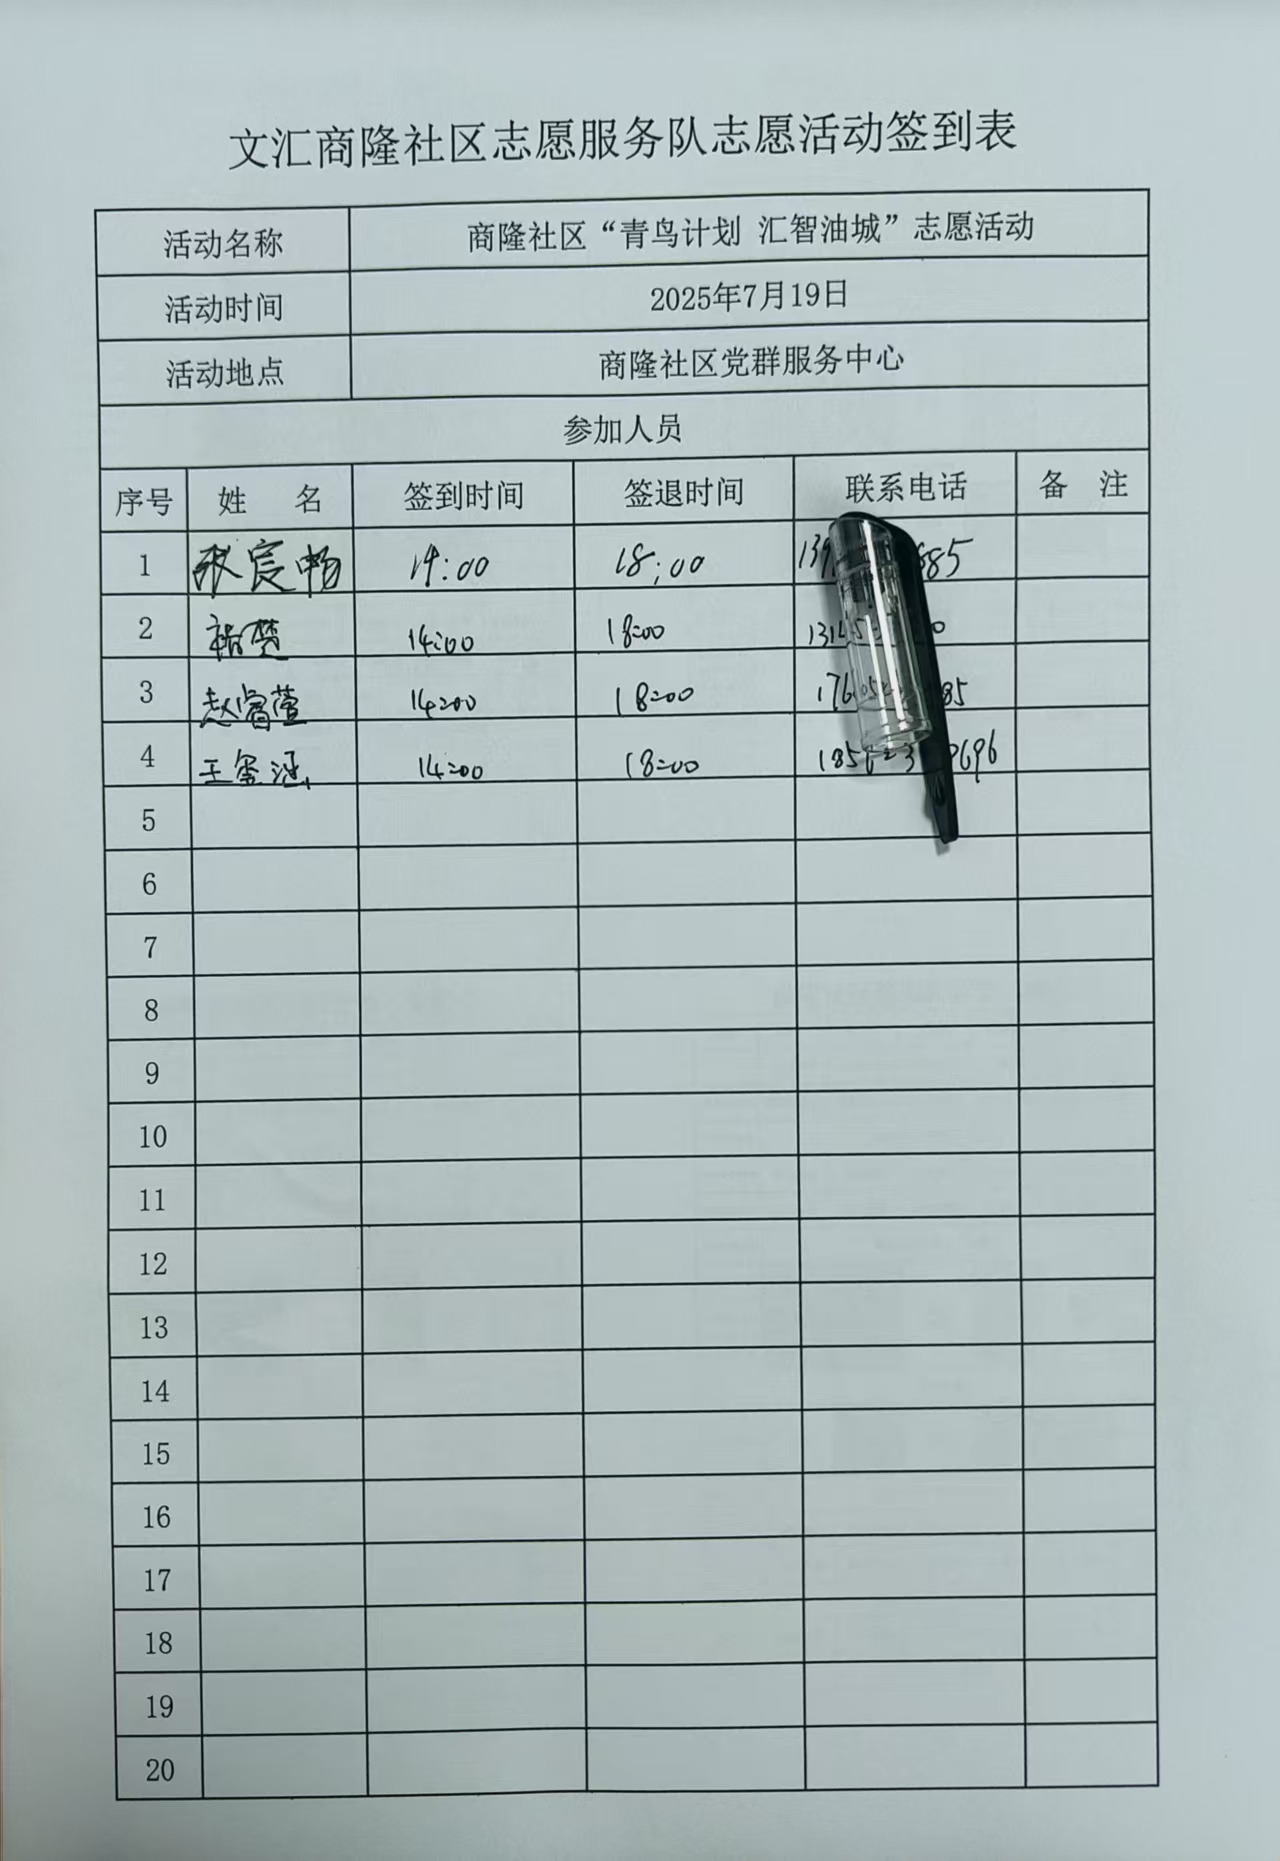 文汇商隆社区志愿服务队志愿活动签到表
活动名称 商隆社区“青鸟计划 汇智油城”志愿活动
活动时间 2025年7月19日
活动地点 商隆社区党群服务中心
参加人员
序号 姓 名 签到时间 签退时间 联系电话 备 注
1 张宸畅 14:00 18:00
2 14:00 18:00
3 赵睿萱 14:00 18:00
4 王 14:00 18:00
5
6
7
8
9
10
11
12
13
14
15
16
17
18
19
20